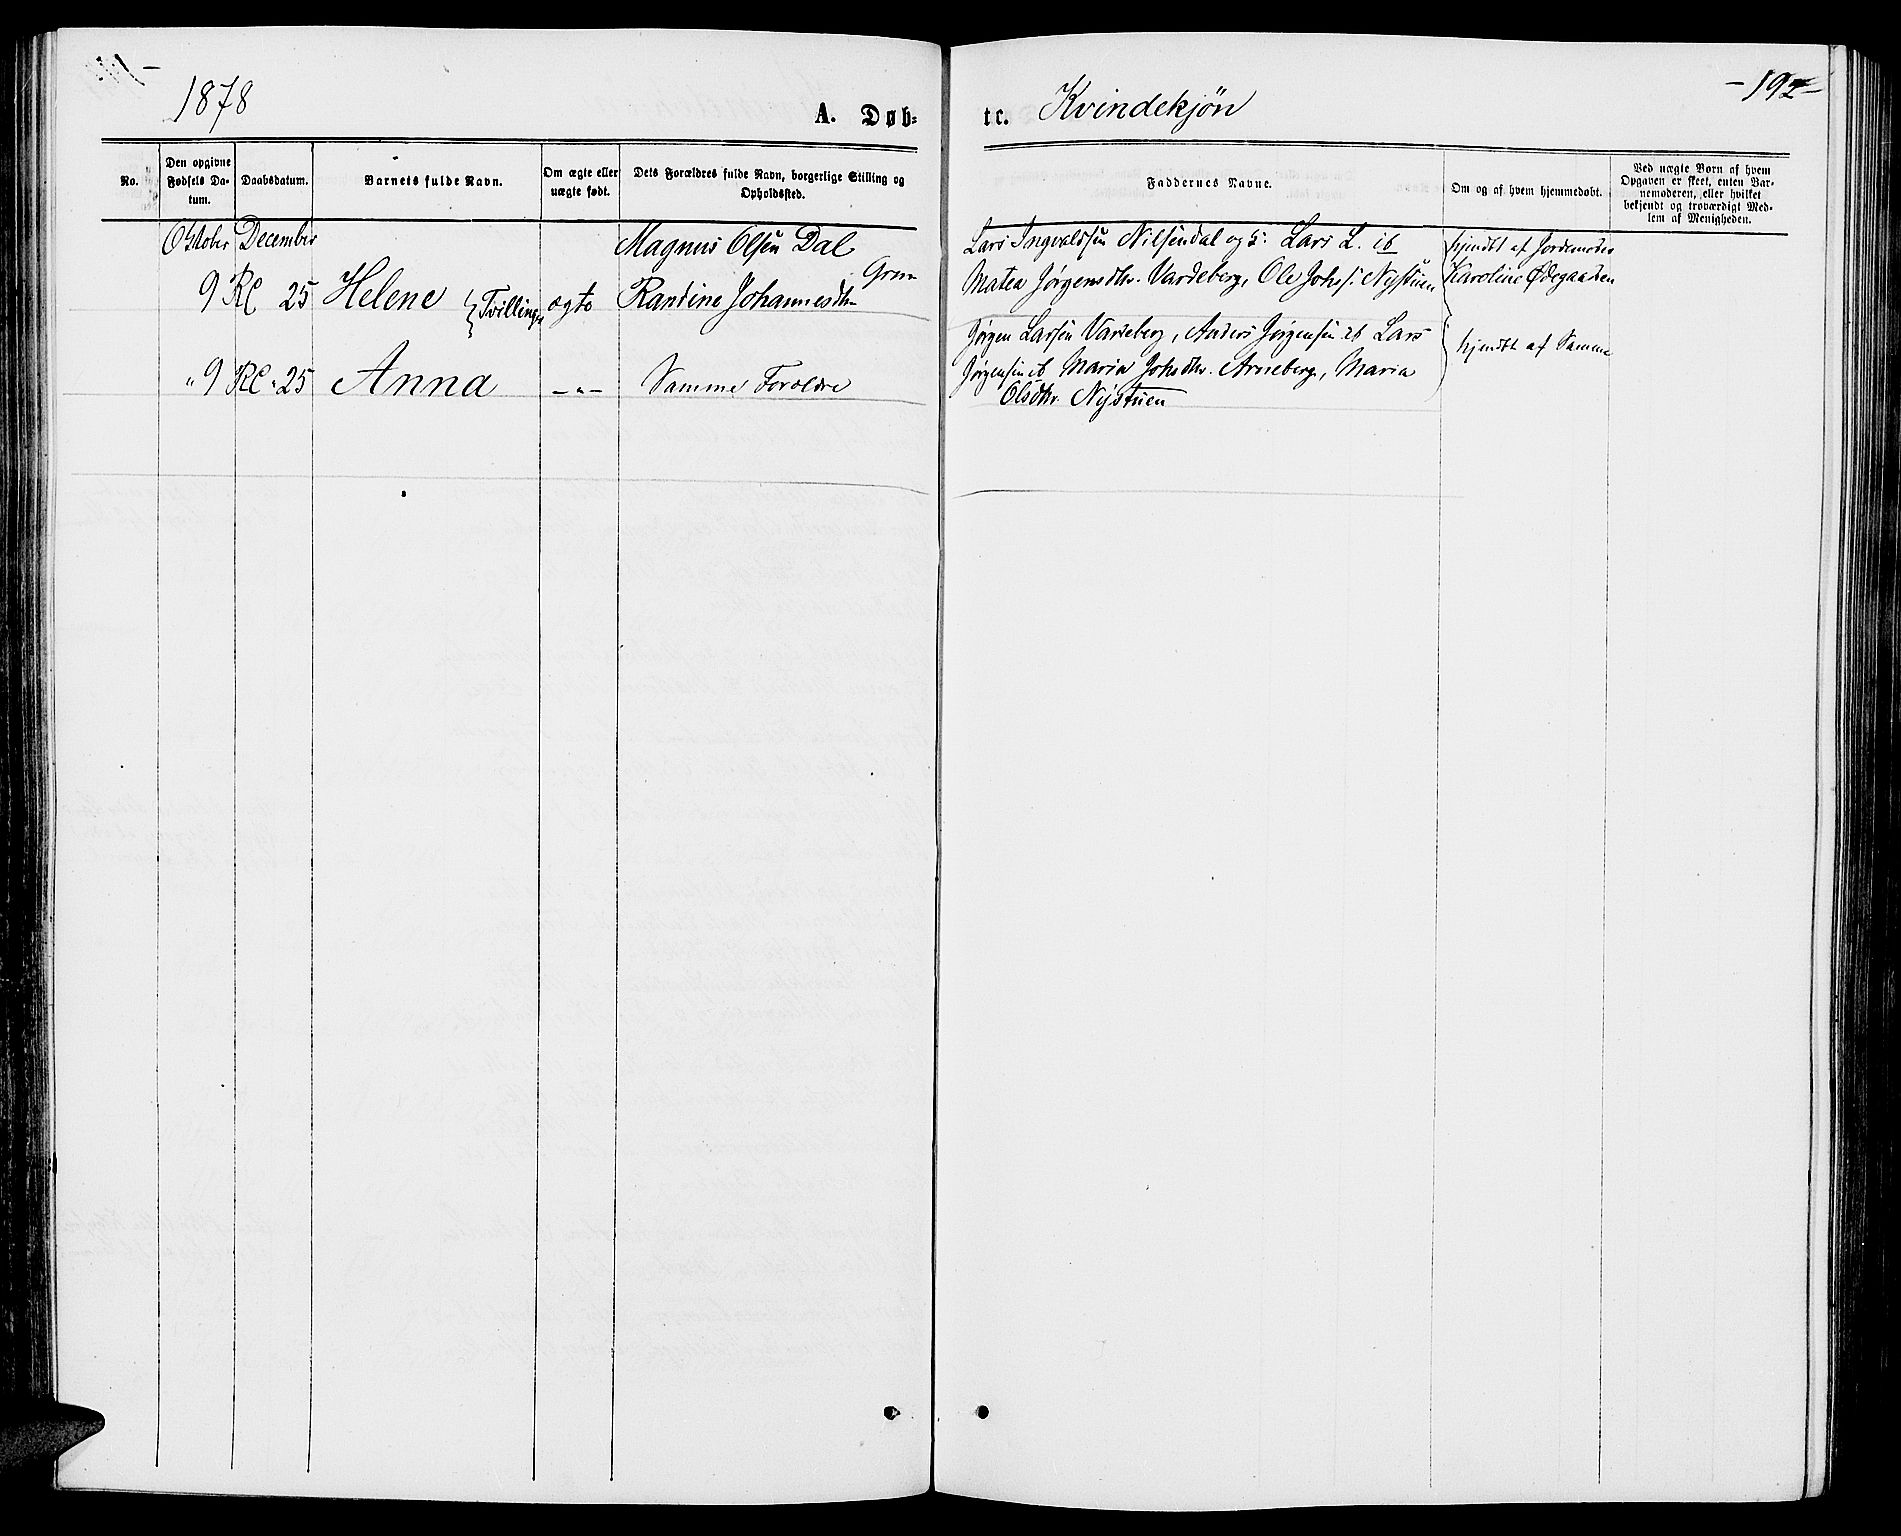 1878
A. Døb-
te. Kvindekjøn
-192-
No.
Den opgivne Fødsels Da-tum.
Daabsdatum.
Barnets fulde Navn.
Om ægte eller uægte født.
Dets Forældres fulde Navn, borgerlige Stilling og Opholdssted.
Faddernes Navne.
Om og af hvem hjemmedøbt.
Ved uægte Børn af hvem Opgaven er skeet, enten Bar-nemoderen, eller hvilket bekjendt og troværdigt Med-lem af Menigheden.
Oktober December Magnus Olsen Dal
9 Kl 25 Helene } Tvillinger ægte Rantine Johannesdtr Gran
Lars Ingvaldssen Nilsendal og H. Lars L. ib
Matea Jørgensdtr. Vardeberg, Ole Johs/. Nystuen
hjemdbt af Jordemoder
Karoline Ødegaarden
" 9 Kl " 25 Anna -"- Samme Forældre
Jørgen Larsen Vardeberg, Anders Jørgensen ib Lars
Jørgensen ib, Maria Johsdtr. Arneberg, Maria
Olsdtr. Nystuen
hjemdbt af Samme